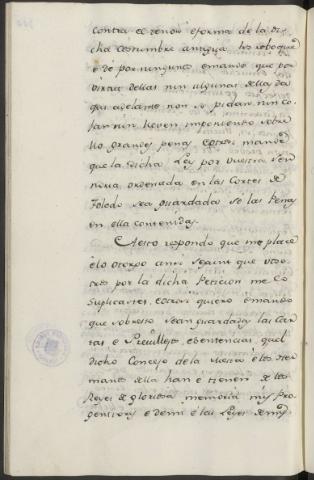 contra el tenor e forma de la di-
cha costumbre antigua los revoque
e dé por ningunos emando que por
virtud dellas nin algunas dellas da
qui adelante non se pidan nin co-
jan nin lleven imponiendo sobre
ello grandes penas e otrosi mande
que la dicha Ley por vuestra Sen-
noria ordenada en las Cortes de
Toledo sea guardada so las penas
en ella contenidas.
A esto respondo que me place
e lo otorgo ansi segunt que voso-
tros por la dicha Peticion me lo
suplicastes, e otrosi quiero e mando
que sobre esto sean guardadas las Car-
tas e Previllejos, e sentencias, quel
dicho Concejo de la Mesta e los Her-
manos della han e tienen de los
Reyes de gloriosa memoria mis Pro-
genitores e de mi e las Leyes de mis